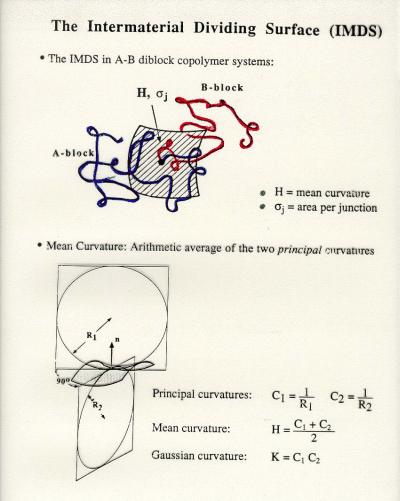 The Intermaterial Dividing Surface (IMDS)
• The IMDS in A-B diblock copolymer systems:
B-block
H, σj
A-block
• H = mean curvature
• σj = area per junction
• Mean Curvature: Arithmetic average of the two principal curvatures
R1
n
90°
R2
Principal curvatures: C1 = 1/R1 C2 = 1/R2
Mean curvature: H = C1 + C2 / 2
Gaussian curvature: K = C1 C2